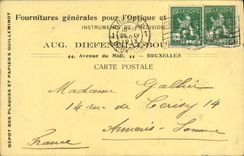 Fournitures générales pour l'Optique et
INSTRUMENTS DE PRÉCISION
AUG. DIEFENTHAL-BOU
44, Avenue du Midi, 44 — BRUXELLES
CARTE POSTALE
DÉPÔT DES PLAQUES ET PAPIERS GUILLEMINOT
Madame Galhié
14 rue de Cerisy 14
Amiens - Somme
France